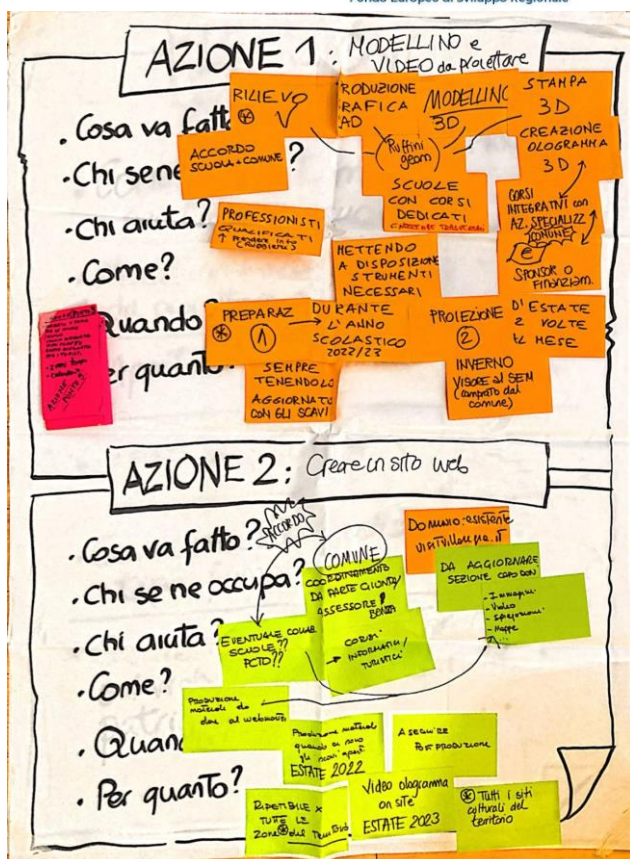 Fondo Europeo di Sviluppo Regionale
AZIONE 1: MODELLINO e
VIDEO da proiettare
. Cosa va fatto
. Chi se ne ?
. Chi aiuta?
. Come?
Quando?
Per quanto?
RILIEVO
ACCORDO
SCUOLA + COMUNE
RODUZIONE
RAFICA
AD
MODELLINO
3D
(Ruffini
geom)
STAMPA
3D
CREAZIONE
OLOGRAMMA
3D
SCUOLE
CON CORSI
DEDICATI
CORSI
INTEGRATIVI con
AZ. SPECIALIZZ
COMUNE
e
SPONSOR O
FINANZIAM.
PROFESSIONISTI
QUALIFICATI
METTENDO
A DISPOSIZIONE
STRUMENTI
NECESSARI
PREPARAZ
1
DURANTE
L'ANNO
SCOLASTICO
2022/23
PROIEZIONE
2
D'ESTATE
2 VOLTE
AL MESE
SEMPRE
TENENDOLO
AGGIORNATO
CON GLI SCAVI
INVERNO
VISORE al SEM
(comprato dal
comune)
AZIONE 2: Creare un sito web
. Cosa va fatto?
. Chi se ne occupa?
. Chi aiuta?
. Come?
. Quan
. Per quanto?
ACCORDO
COMUNE
COORDINAMENTO
DA PARTE GIUNTA/
ASSESSORE
CORSI
INFORMATICI/
TURISTICI
DOMINIO: esistente
DA AGGIORNARE
SEZIONE CAPO DON
- Immagini
- Video
- spiegazioni
- Mappe
EVENTUALE
SCUOLE??
PCTO??
PRODUZIONE
materiali da
dare al webmaster
Produzione materiali
quando ci sono
gli scavi aperti
ESTATE 2022
A SEGUIRE
POST PRODUZIONE
RIPETIBILE X
TUTTE LE
ZONE del Territorio
Video ologramma
on site
ESTATE 2023
Tutti i siti
culturali del
territorio